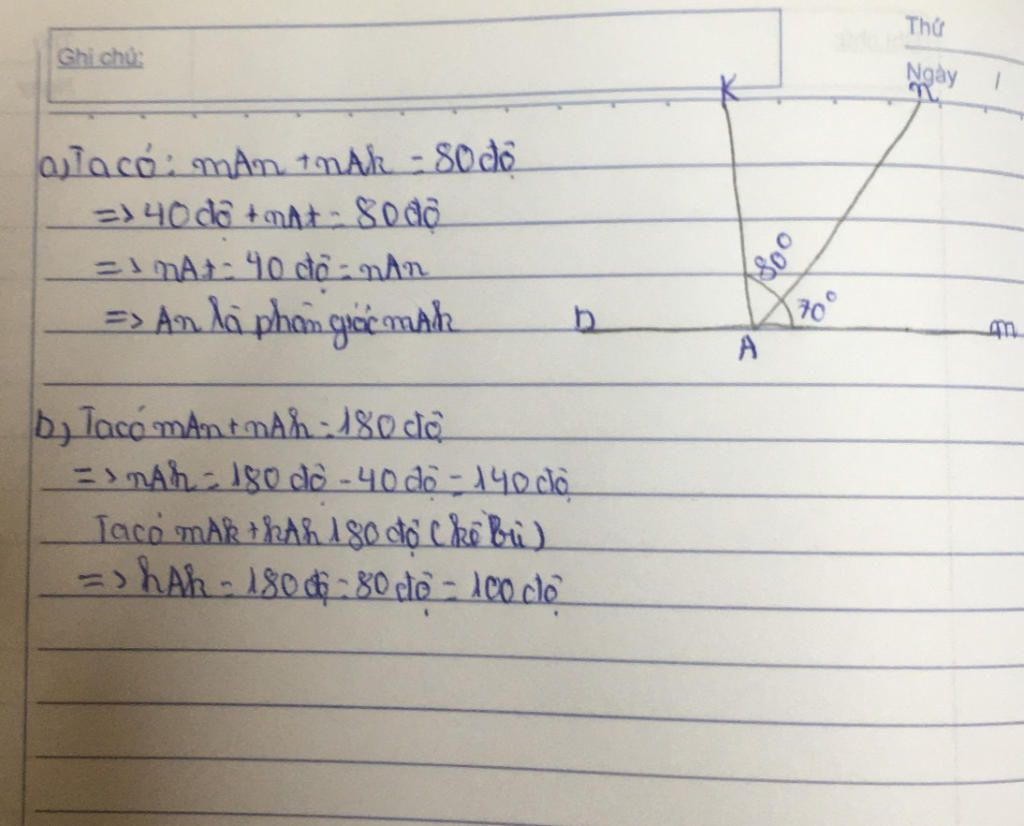 Ghi chú:
Thứ
Ngày /
K
n
a, Ta có: mAn + nAk = 80 độ
=> 40 độ + nAt = 80 độ
=> nAt = 40 độ = nAn
=> An là phân giác mAk
80°
70°
D
m
A
b, Ta có mAn + nAh = 180 độ
=> nAh = 180 độ - 40 độ = 140 độ
Ta có mAk + kAh 180 độ (kề Bù)
=> kAh = 180 độ - 80 độ = 100 độ